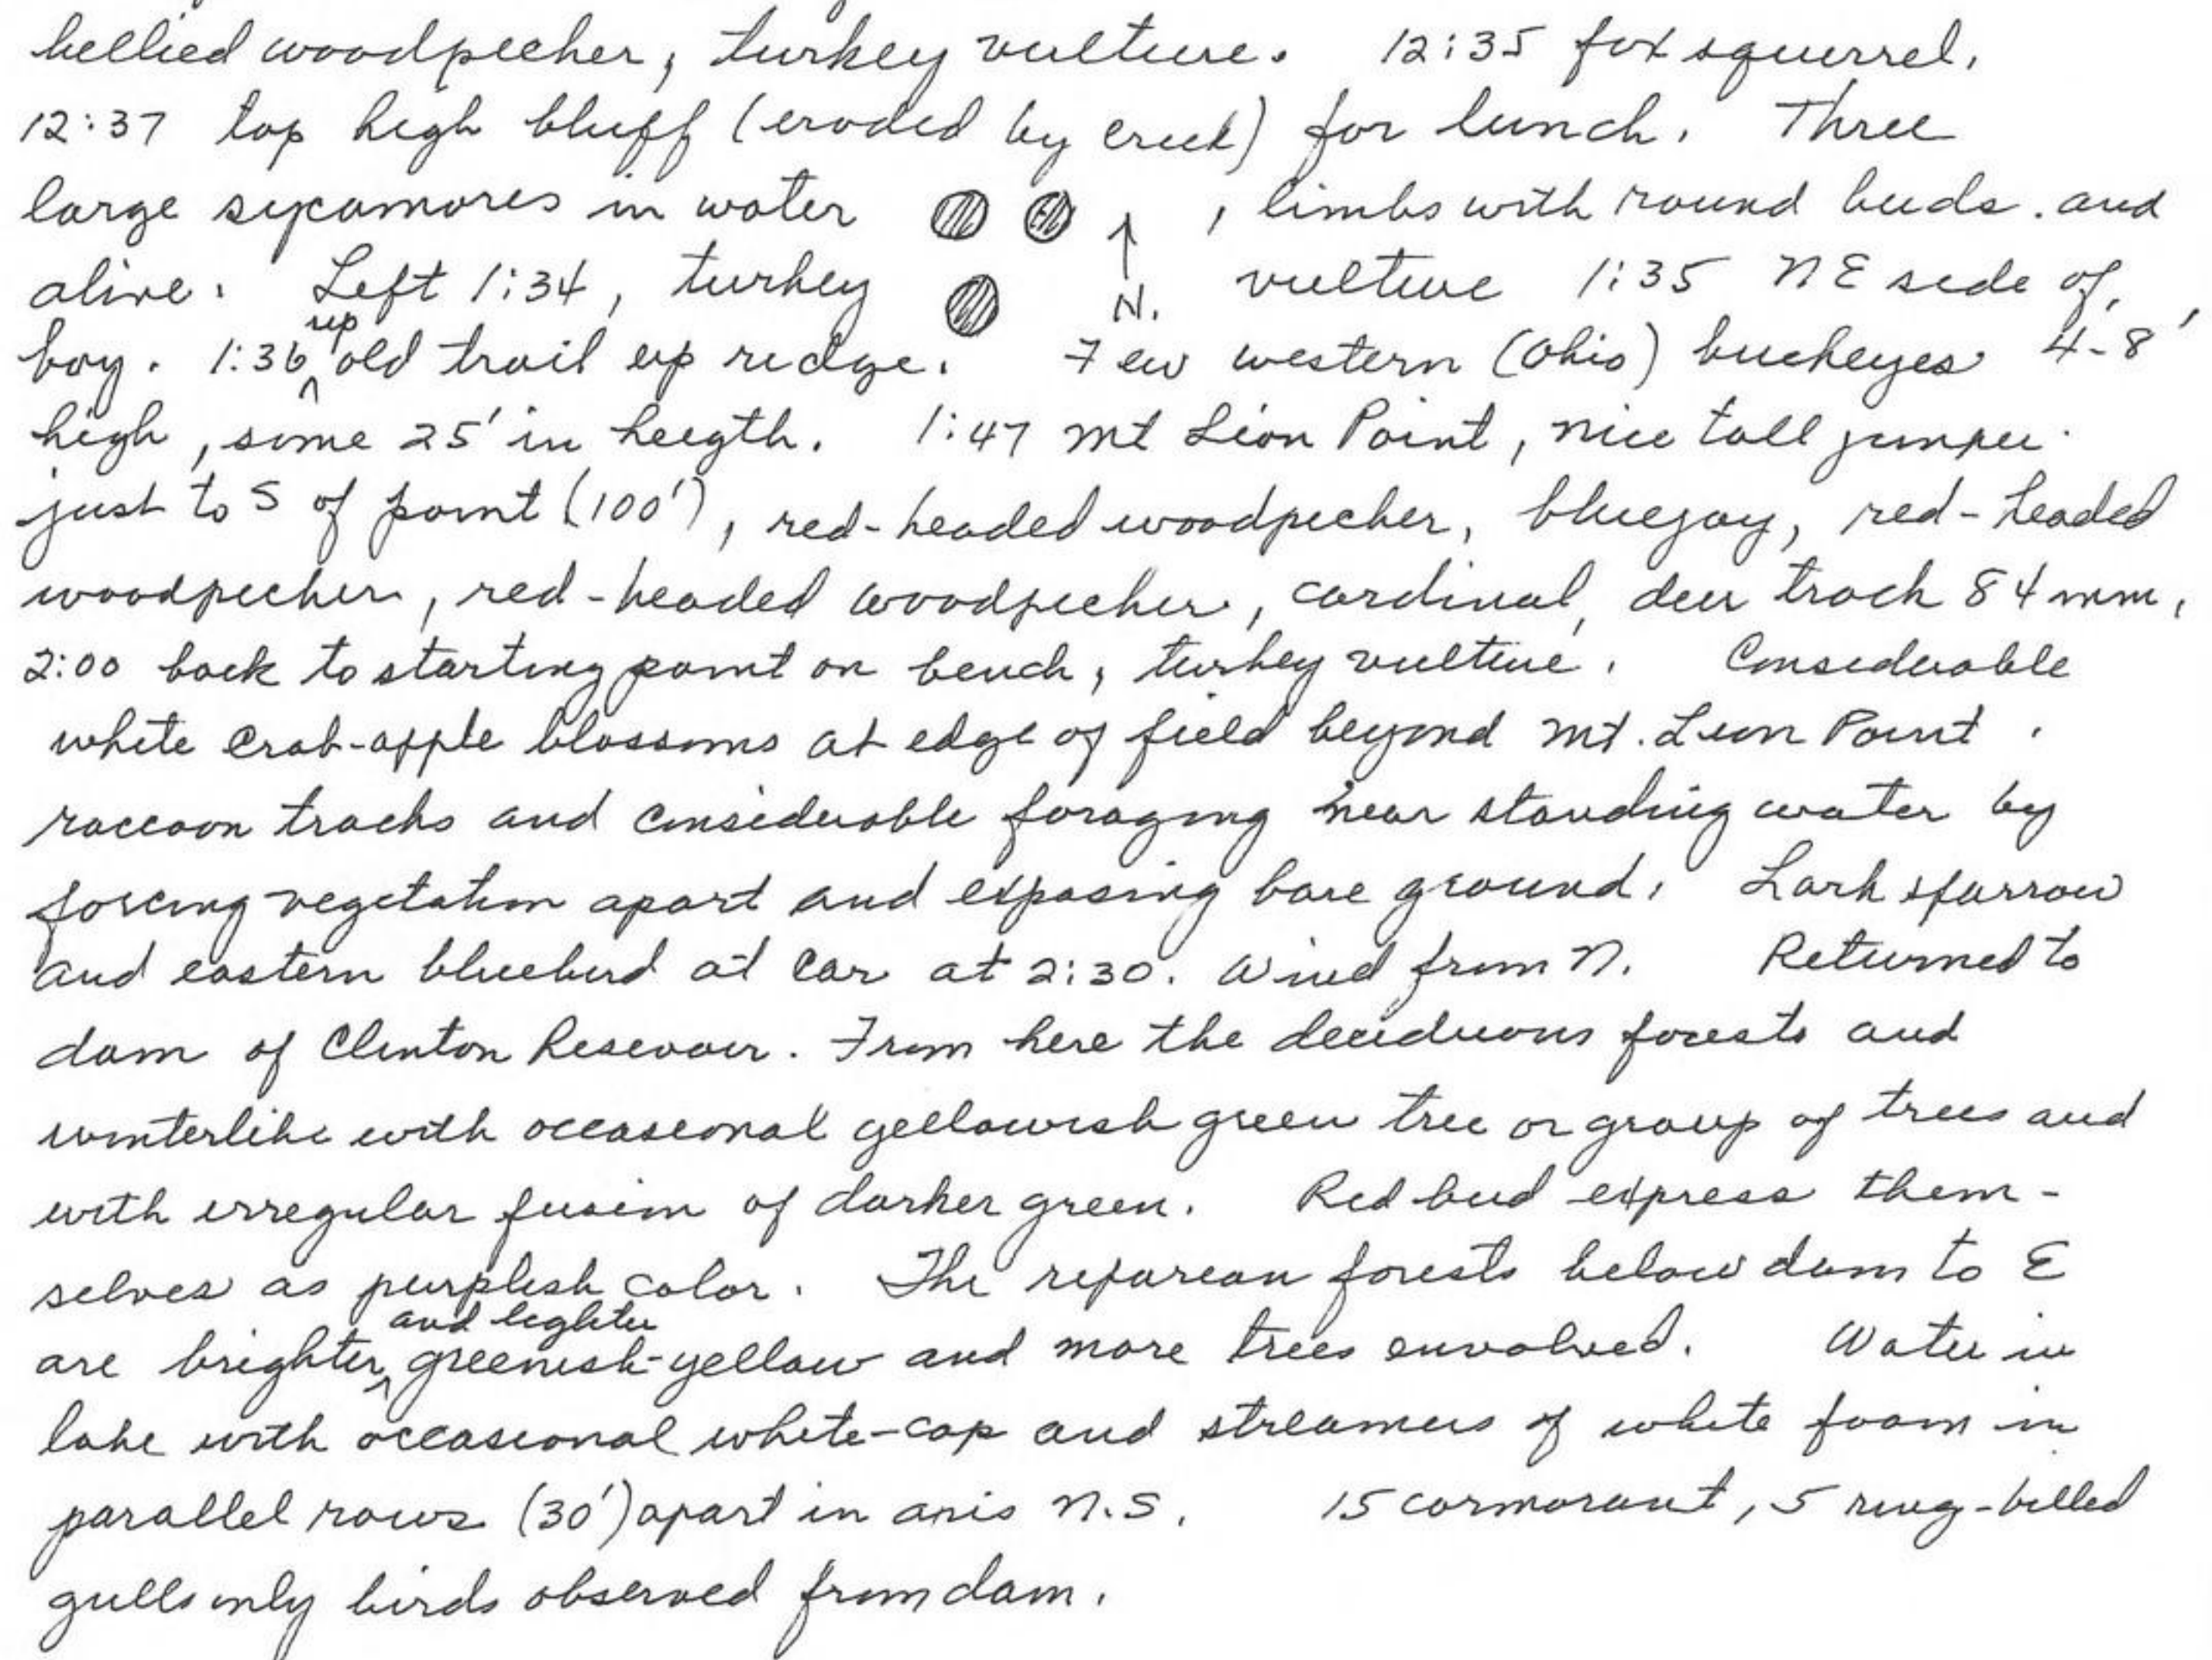 bellied woodpecker, turkey vulture. 12:35 fox squirrel.
12:37 top high bluff (eroded by creek) for lunch. Three
large sycamores in water , limbs with round buds. and
alive. Left 1:34, turkey N. vulture 1:35 NE side of
bay. 1:36 up old trail up ridge. Few western (Ohio) buckeyes 4-8'
high, some 25' in heigth. 1:47 Mt Lion Point, nice tall juniper
just to S of point (100'), red-headed woodpecker, bluejay, red-headed
woodpecker, red-headed woodpecker, cardinal, deer track 84 mm,
2:00 back to starting point on bench, turkey vulture. Considerable
white crab-apple blossoms at edge of field beyond Mt. Lion Point.
raccoon tracks and considerable foraging near standing water by
forcing vegetation apart and exposing bare ground. Lark sparrow
and eastern bluebird at car at 2:30. Wind from N. Returned to
dam of Clinton Resevoir. From here the deciduous forests and
winterlike with occasional yellowish green tree or group of trees and
with irregular fusion of darker green. Red bud express them-
selves as purplish color. The reparean forests below dam to E
are brighter and lighter greenish-yellow and more trees envolved. Water in
lake with occasional white-cap and streamers of white foam in
parallel rows (30') apart in axis N.S. 15 cormorant, 5 ring-billed
gulls only birds observed from dam.